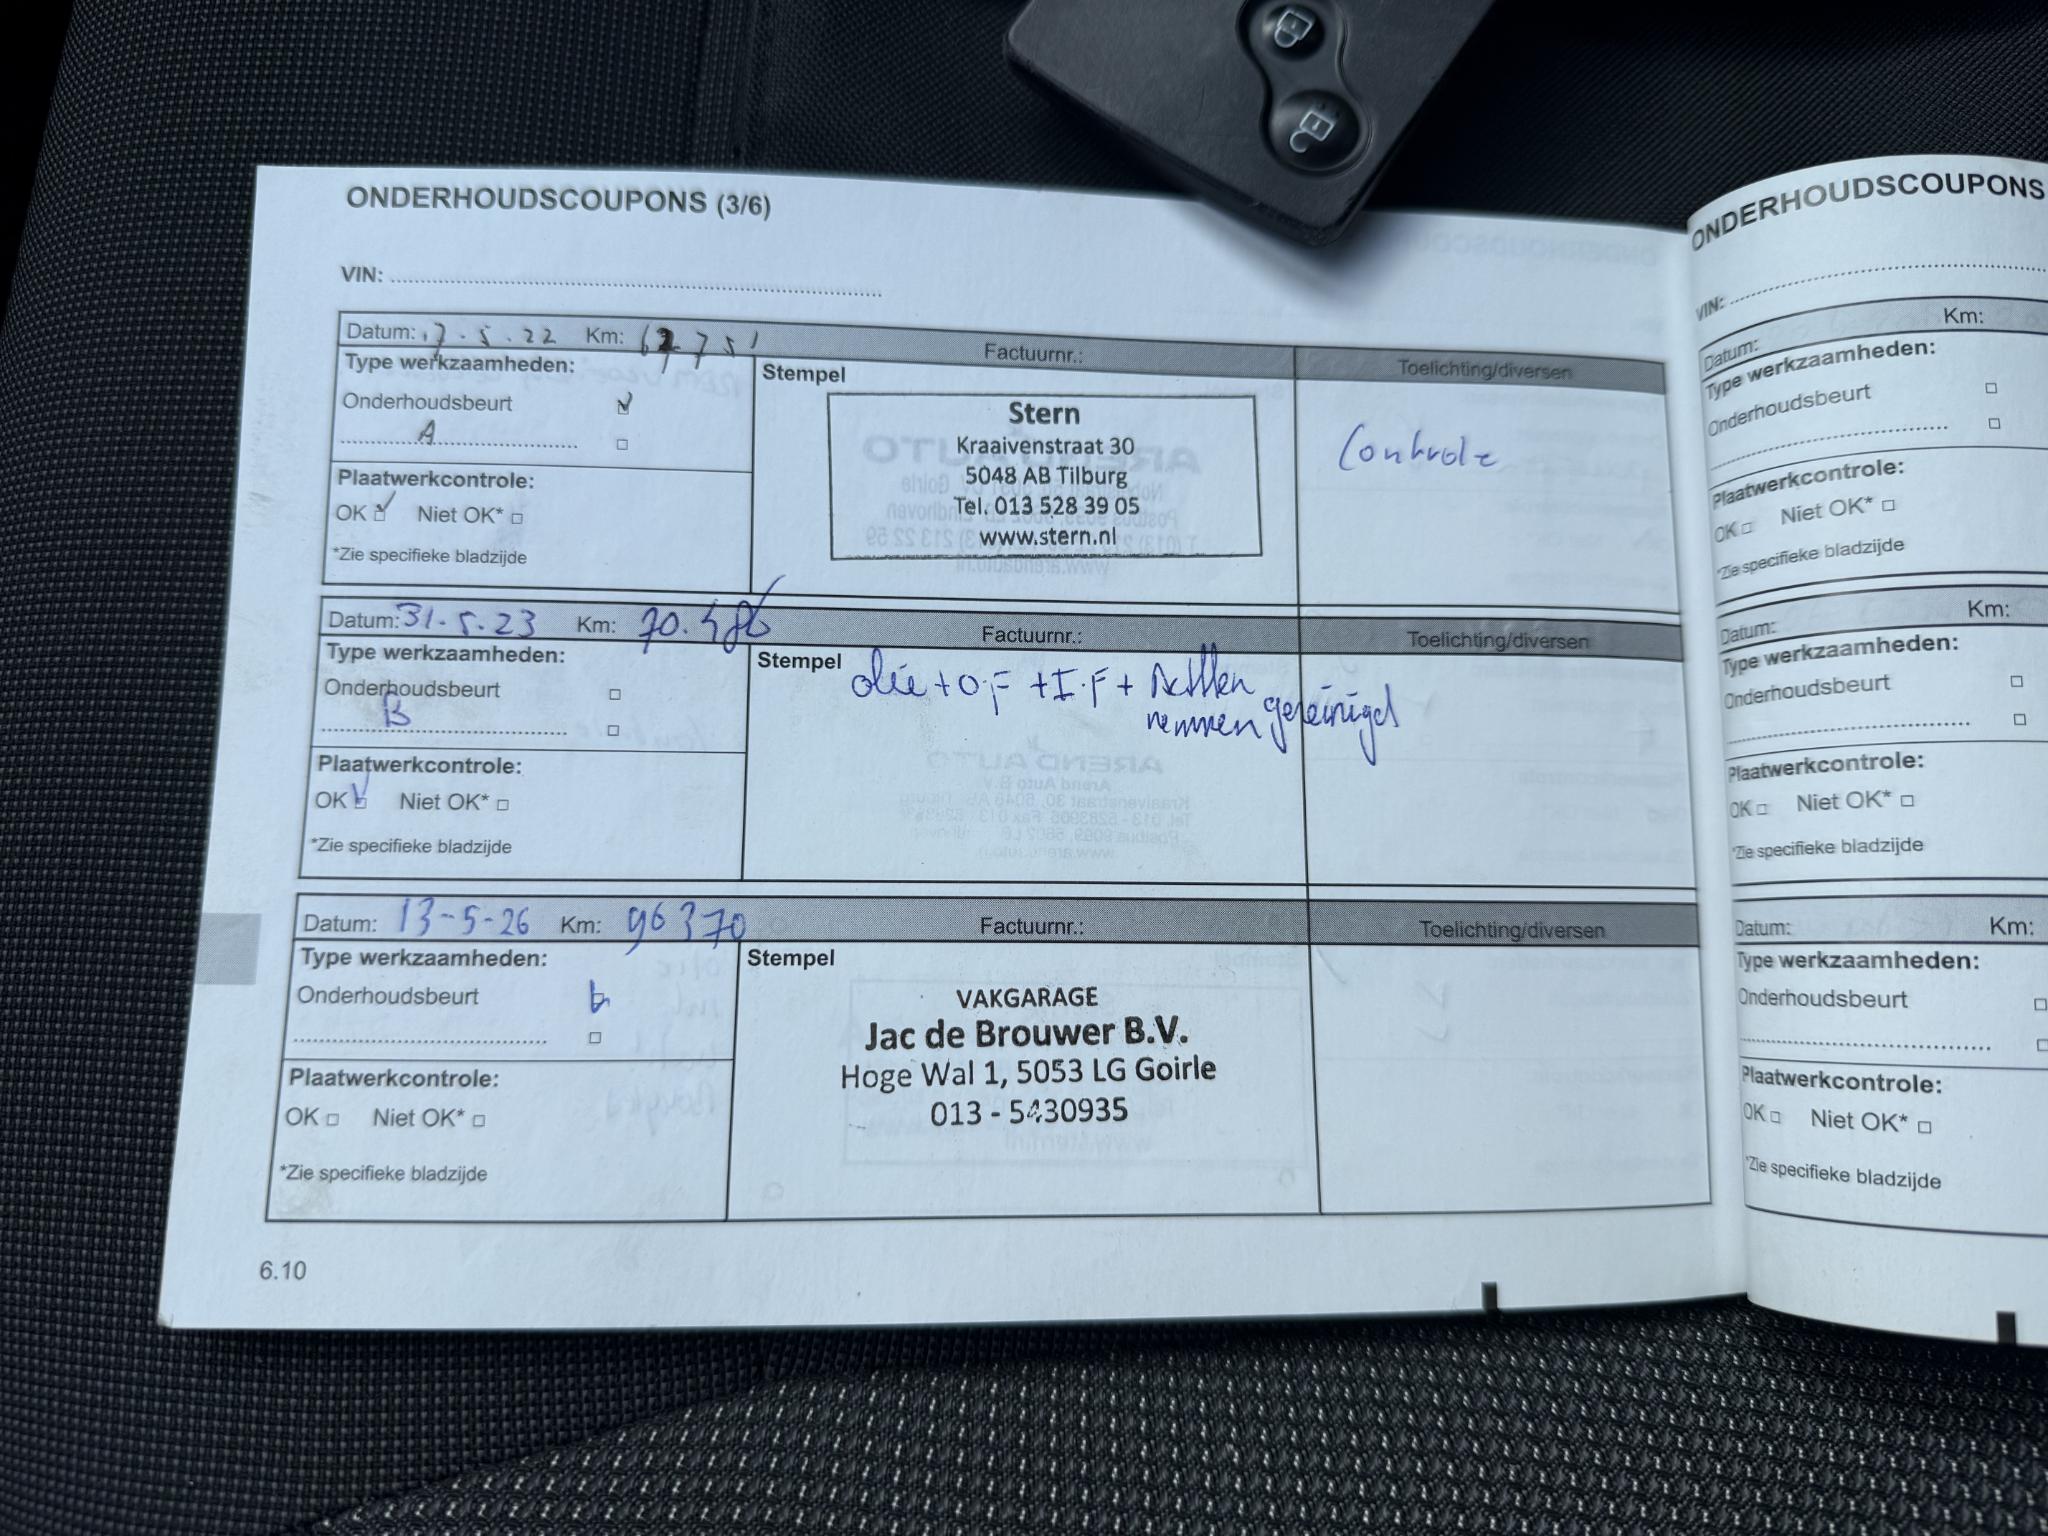 ONDERHOUDSCOUPONS (3/6)
VIN:
Datum: 17.5.22 Km: Factuurnr.: Toelichting/diversen
Type werkzaamheden:
Onderhoudsbeurt
A
Plaatwerkcontrole:
OK Niet OK*
*Zie specifieke bladzijde
Stempel
Stern
Kraaivenstraat 30
5048 AB Tilburg
Tel. 013 528 39 05
www.stern.nl
Controle
Datum: 31-5-23 Km: 70.486 Factuurnr.: Toelichting/diversen
Type werkzaamheden:
Onderhoudsbeurt
B
Plaatwerkcontrole:
OK Niet OK*
*Zie specifieke bladzijde
Stempel
olie + O.F + I.F + Achter
remmen gereinigd
Datum: 13-5-26 Km: 96370 Factuurnr.: Toelichting/diversen
Type werkzaamheden:
Onderhoudsbeurt
Plaatwerkcontrole:
OK Niet OK*
*Zie specifieke bladzijde
Stempel
VAKGARAGE
Jac de Brouwer B.V.
Hoge Wal 1, 5053 LG Goirle
013 - 5430935
6.10
ONDERHOUDSCOUPONS
VIN:
Datum: Km:
Type werkzaamheden:
Onderhoudsbeurt
Plaatwerkcontrole:
OK Niet OK*
*Zie specifieke bladzijde
Datum: Km:
Type werkzaamheden:
Onderhoudsbeurt
Plaatwerkcontrole:
OK Niet OK*
*Zie specifieke bladzijde
Datum: Km:
Type werkzaamheden:
Onderhoudsbeurt
Plaatwerkcontrole:
OK Niet OK*
*Zie specifieke bladzijde